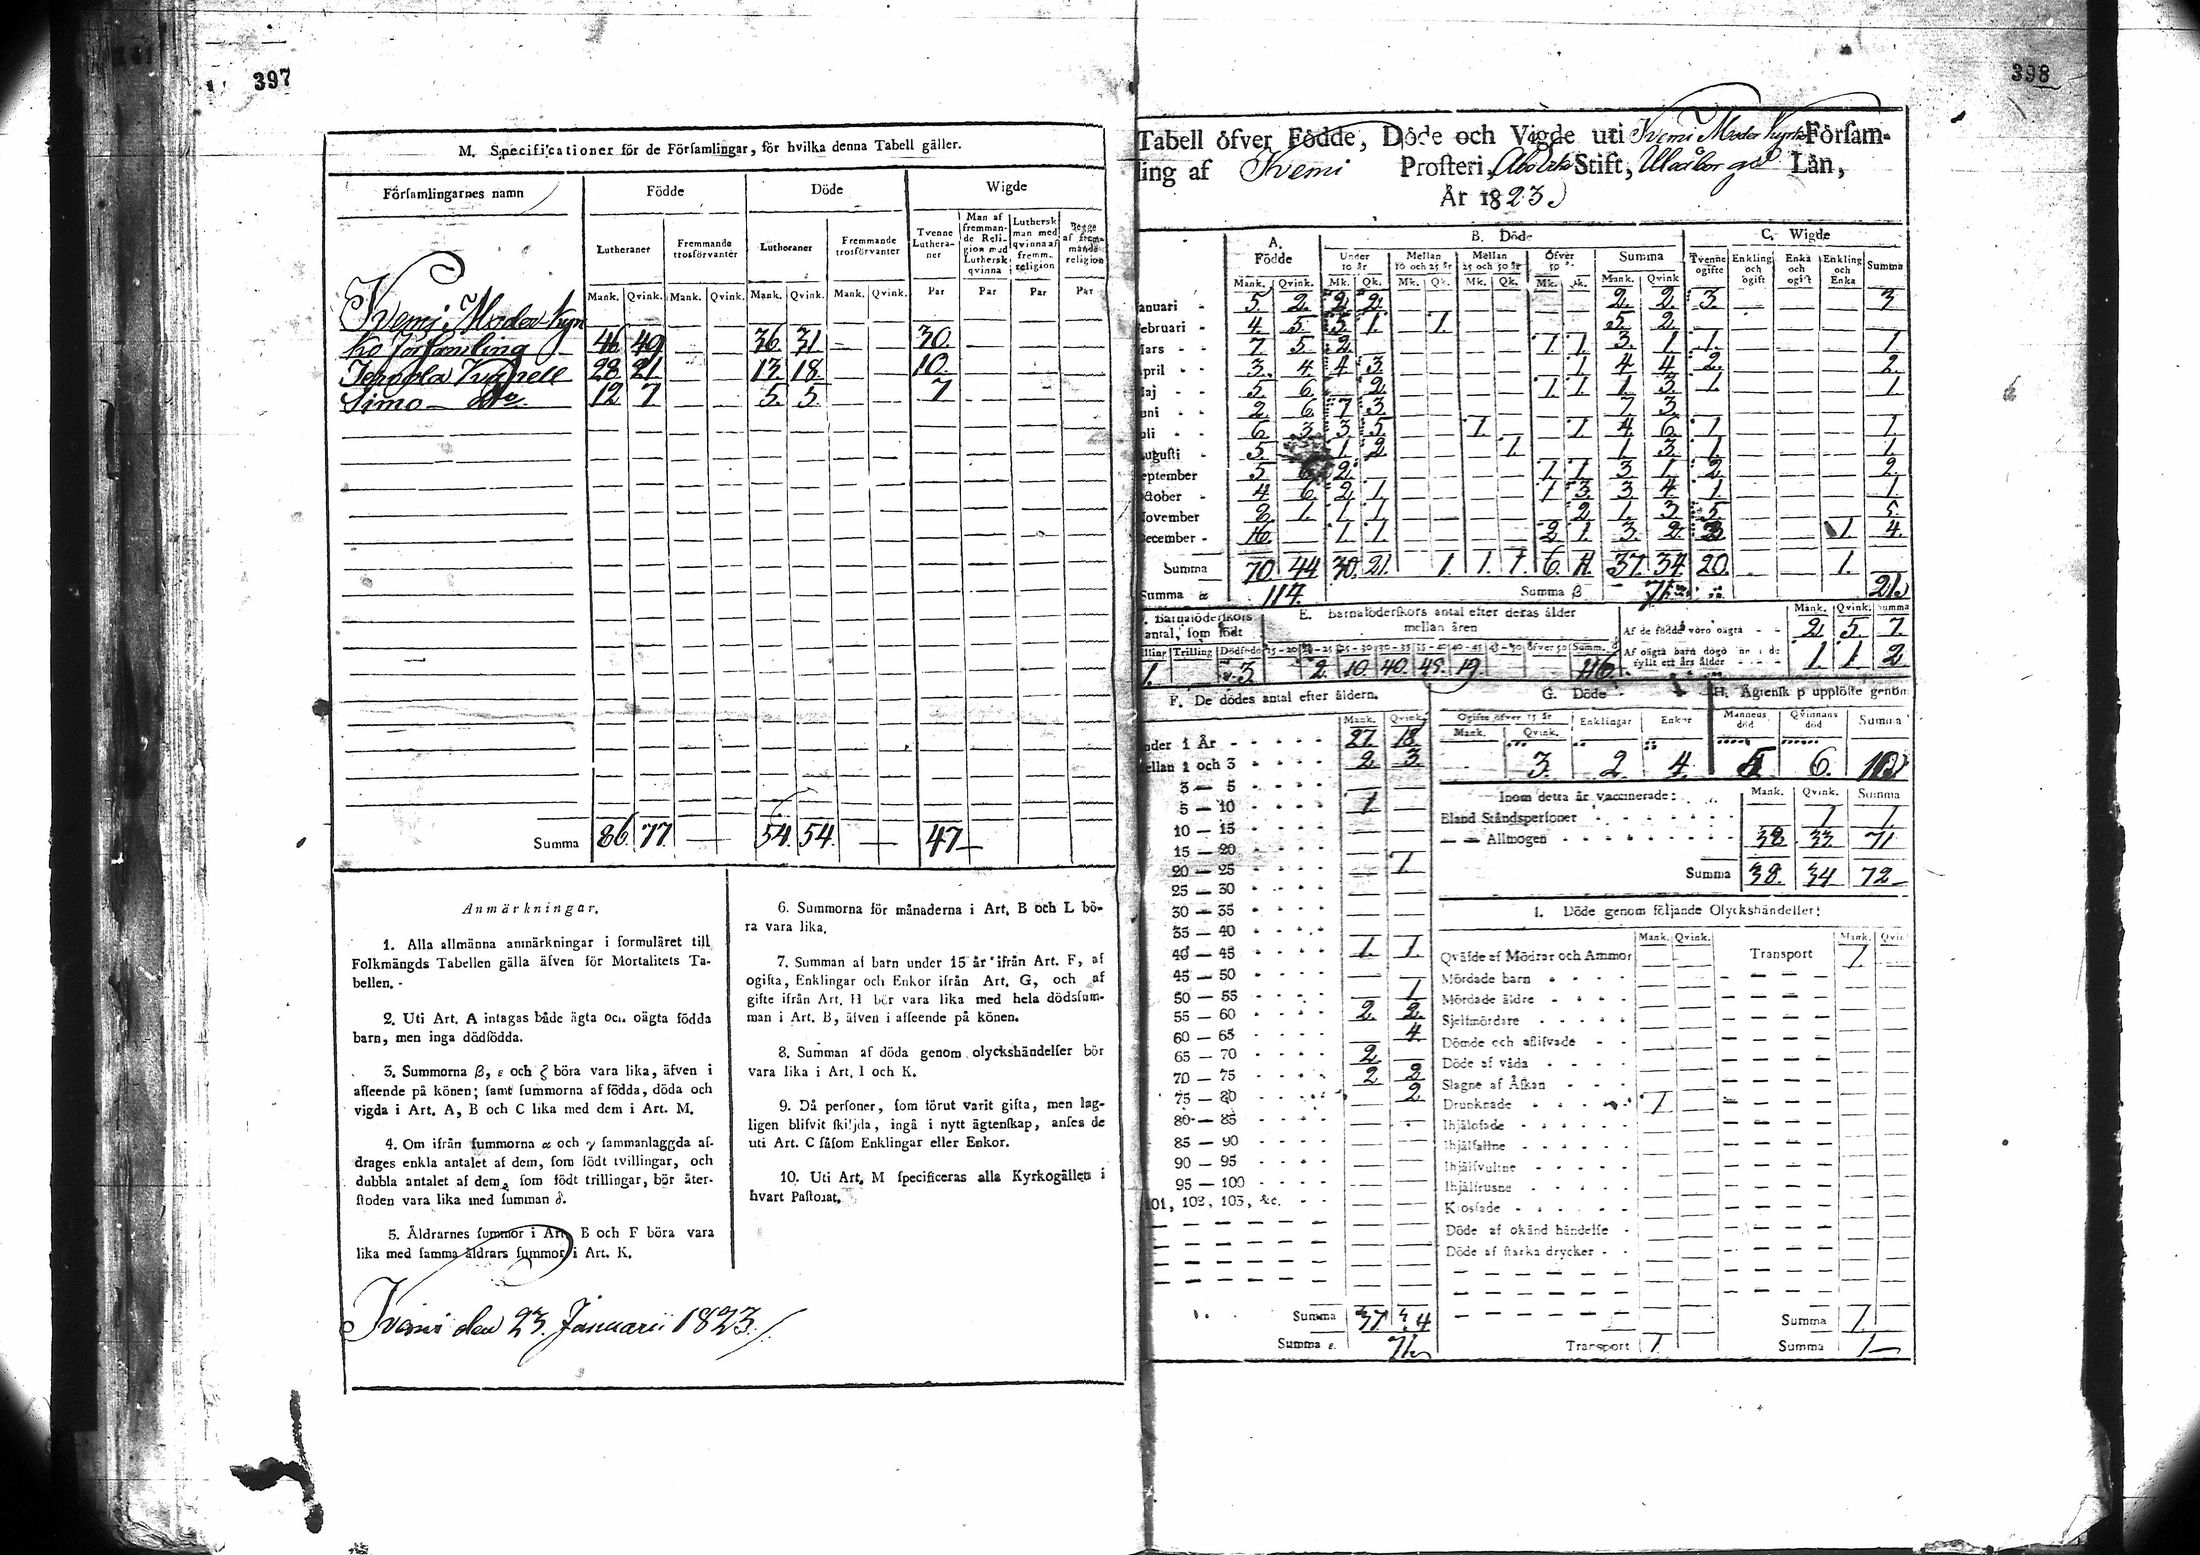 397
M. Specificationer för de Församlingar, för hvilka denna Tabell gäller.
Församlingarnes namn Födde Döde Wigde
Lutheraner Fremmande trosförvanter Lutheraner Fremmande trosförvanter Tvenne Lutheraner Man af fremmande Religion med Luthersk qvinna Luthersk man med qvinna af fremm. religion Begge af fremmande religion
Mank. Qvink. Mank. Qvink. Mank. Qvink. Mank. Qvink. Par Par Par Par
Kemi Moderkyr
ko församling 46 49 36 31 30
Tervola Kapell 28 21 13 18 10
Simo dito 12 7 5 5 7
Summa 86 77 54 54 47
Anmärkningar.
1. Alla allmänna anmärkningar i formuläret till
Folkmängds Tabellen gälla äfven för Mortalitets Ta-
bellen.
2. Uti Art. A intagas både ägta och oägta födda
barn, men inga dödfödda.
3. Summorna β, ε och ζ böra vara lika, äfven i
afseende på könen; samt summorna af födda, döda och
vigda i Art. A, B och C lika med dem i Art. M.
4. Om ifrån summorna α och γ sammanlaggda af-
drages enkla antalet af dem, som födt tvillingar, och
dubbla antalet af dem, som födt trillingar, bör åter-
stoden vara lika med summan δ.
5. Åldrarnes summor i Art. B och F böra vara
lika med samma åldrars summor i Art. K.
6. Summorna för månaderna i Art. B och L bö-
ra vara lika.
7. Summan af barn under 15 år ifrån Art. F, af
ogifta, Enklingar och Enkor ifrån Art. G, och af
gifte ifrån Art. H bör vara lika med hela dödssum-
man i Art. B, äfven i afseende på könen.
8. Summan af döda genom olyckshändelser bör
vara lika i Art. I och K.
9. Då personer, som förut varit gifta, men lag-
ligen blifvit skiljda, ingå i nytt ägtenskap, anses de
uti Art. C såsom Enklingar eller Enkor.
10. Uti Art. M specificeras alla Kyrkogällen i
hvart Pastorat.
Kemi den 23. Januarii 1823.
398
Tabell öfver Födde, Döde och Vigde uti Kemi Moderkyrko Försam-
ling af Kemi Prosteri, Åbo Stift, Uleåborgs Län,
År 1823
A. Födde B. Döde C. Wigde
Under 10 år Mellan 10 och 25 år Mellan 25 och 50 år Öfver 50 år Summa Tvenne ogifte Enkling och ogift Enka och ogift Enkling och Enka Summa
Mank. Qvink. Mk. Qk. Mk. Qk. Mk. Qk. Mk. Qk. Mank. Qvink.
anuari 5 2 2 2 2 2 3 3
ebruari 4 5 5 1 1 5 2
Mars 7 5 2 1 1 3 1 1 1
April 3 4 4 3 1 4 4 2 2
Maj 5 6 2 1 1 1 3 1 1
uni 2 6 7 3 7 3
uli 6 3 3 5 1 1 4 6 1 1
Augusti 5 1 2 1 1 3 1 1
eptember 5 6 2 1 1 3 1 2 2
October 4 6 2 1 1 3 3 4 1 1
November 8 1 1 1 2 1 3 5 5
December 16 1 1 2 1 3 2 3 1 4
Summa 70 44 30 21 1 1 1 6 11 37 34 20 1
Summa α 114 Summa β 71 21
Barnaföderskors antal, som födt E. Barnaföderskors antal efter deras ålder mellan åren
Mank. Qvink. Summa
Af de födda voro oägta 2 5 7
Af oägta barn dogo 1 1 2
fyllt ett års ålder
lling Trilling Dödfödd 15-20 20-25 25-30 30-35 35-40 40-45 45-50 öfver 50 Summ. δ
1 3 2 10 40 45 19 116
F. De dödes antal efter åldern. G. Döde H. Ägtensk p upplöste genom
Mank. Qvink. Ogifte öfver 15 år Enklingar Enkor Mannens död Qvinnans död Summa
Mank. Qvink.
3 2 4 6 10
nder 1 År 27 18
ellan 1 och 3 2 3
3 — 5
5 — 10 1
10 — 15
15 — 20
20 — 25 1
25 — 30
30 — 35
35 — 40
40 — 45 1 1
45 — 50
50 — 55 1
55 — 60 2 2
60 — 65 4
65 — 70 2
70 — 75 2 2
75 — 80 2
80 — 85
85 — 90
90 — 95
95 — 100
101, 102, 103, &c.
Summa 37 34
Summa ε. 71
Inom detta år vaccinerade: Mank. Qvink. Summa
Bland Ståndspersoner 1 1
— — Allmogen 38 33 71
Summa 38 34 72
I. Döde genom följande Olyckshändelser:
Mank. Qvink. Mank. Qvin
Qväfde af Mödrar och Ammor Transport 1
Mördade barn
Mördade äldre
Sjelfmördare
Dömde och aflifvade
Döde af våda
Slagne af Åskan
Drunknade 1
Ihjälofade
Ihjälfallne
Ihjälfvultne
Ihjälfrusne
Krossade
Döde af okänd händelse
Döde af starka drycker
Summa 1
Transport 1 Summa 1